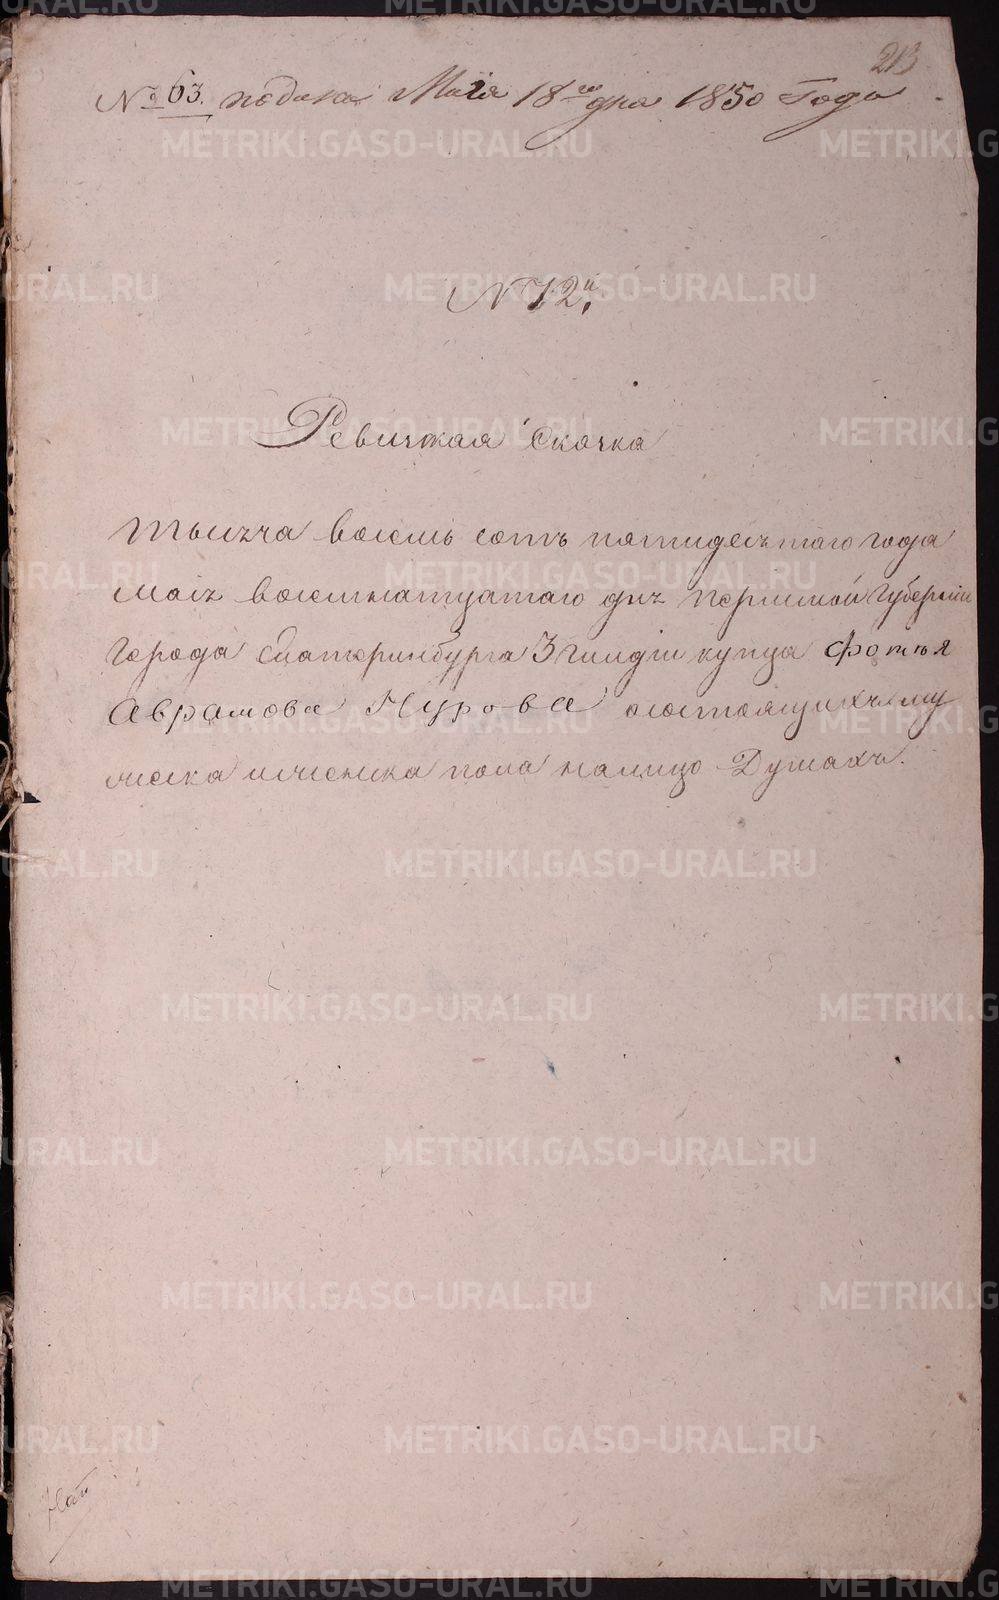 213
№ 63. подана Маія 18го дня 1850 Года
№ 12й
Ревижская Скаска
Тысяча восемь сотъ пятидесятаго года
маія восемнатцатаго дня Пермской Губерніи
города Екатеринбурга 3 гилдіи купца Фотѣя
Аврамова Нурова о состоящихъ му
жеска и женска пола налицо Душахъ.
METRIKI.GASO-URAL.RU